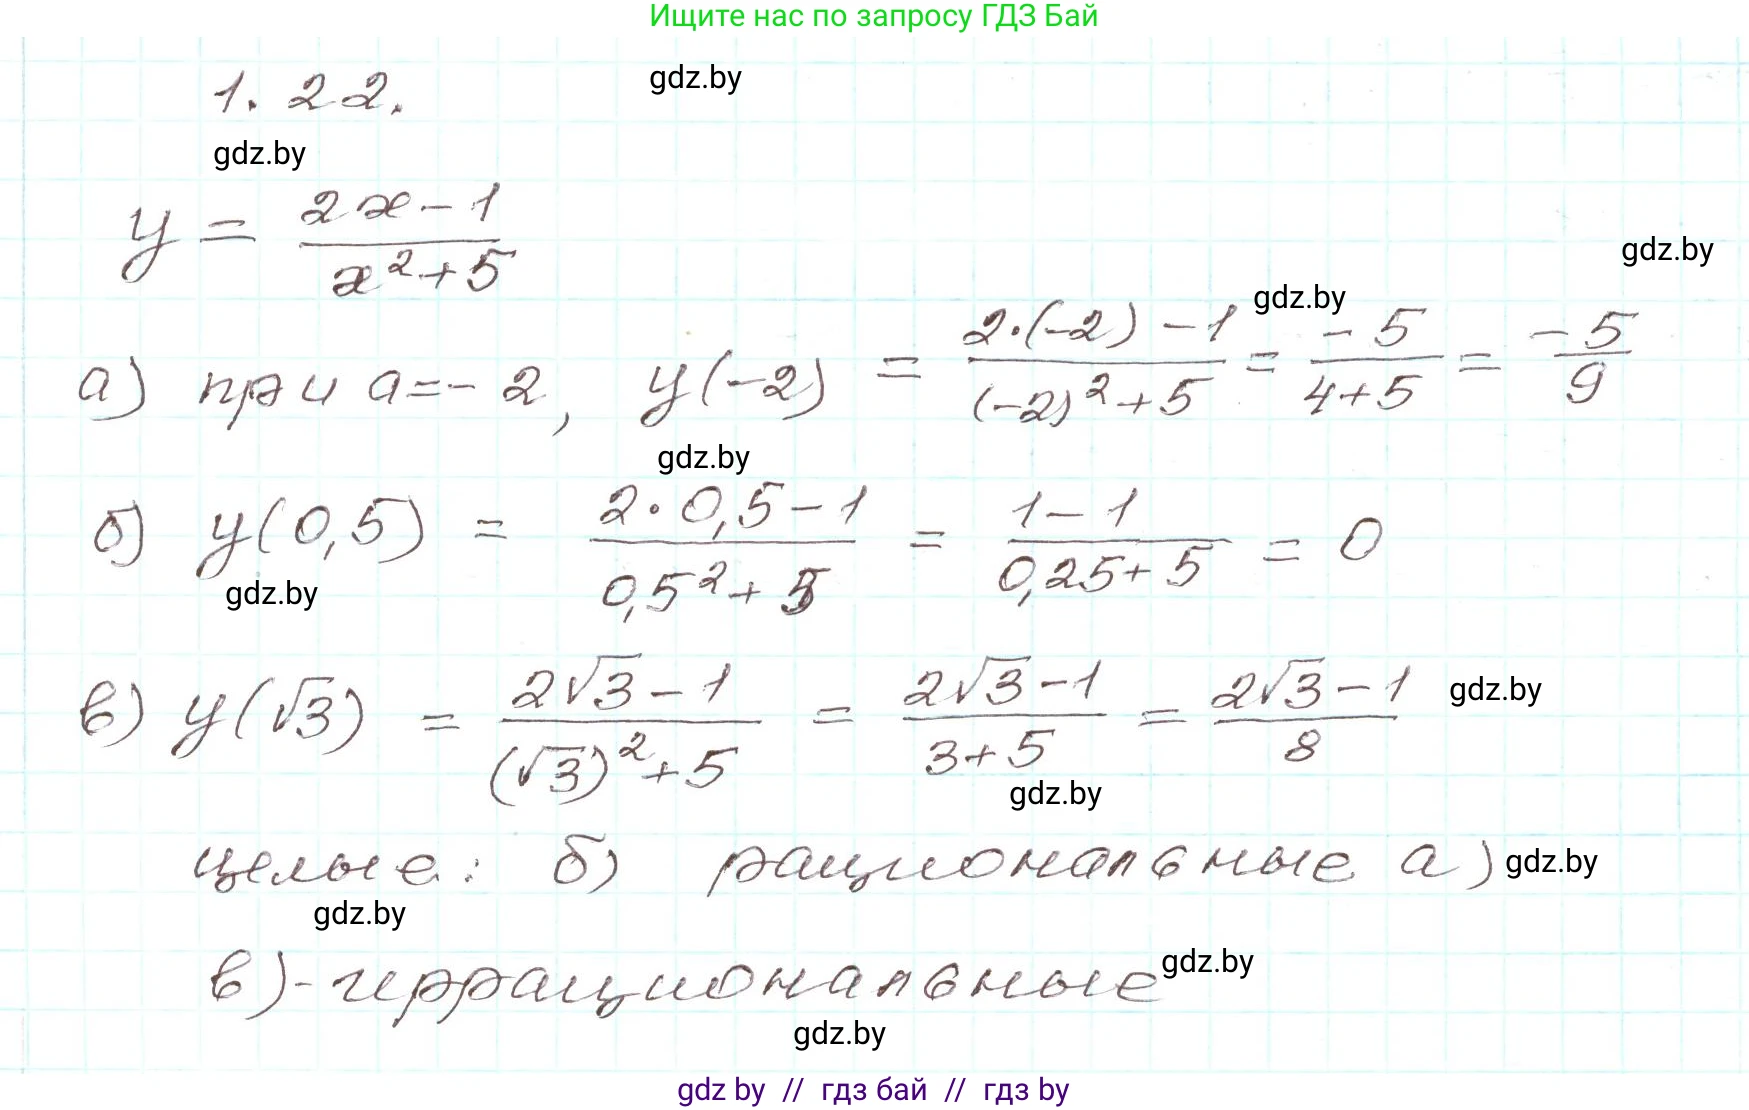 Ищите нас по запросу ГДЗ Бай
1.22.
gdz.by
gdz.by
y = (2x-1)/(x²+5)
gdz.by
gdz.by
а) при a=-2, y(-2) = (2·(-2)-1)/((-2)²+5) = (-5)/(4+5) = (-5)/9
gdz.by
б) y(0,5) = (2·0,5-1)/(0,5²+5) = (1-1)/(0,25+5) = 0
gdz.by
в) y(√3) = (2√3-1)/((√3)²+5) = (2√3-1)/(3+5) = (2√3-1)/8
gdz.by
gdz.by
целые: б) рациональные а)
gdz.by
gdz.by
в)-иррациональные
gdz.by
gdz.by
gdz by // гдз бай // гдз by